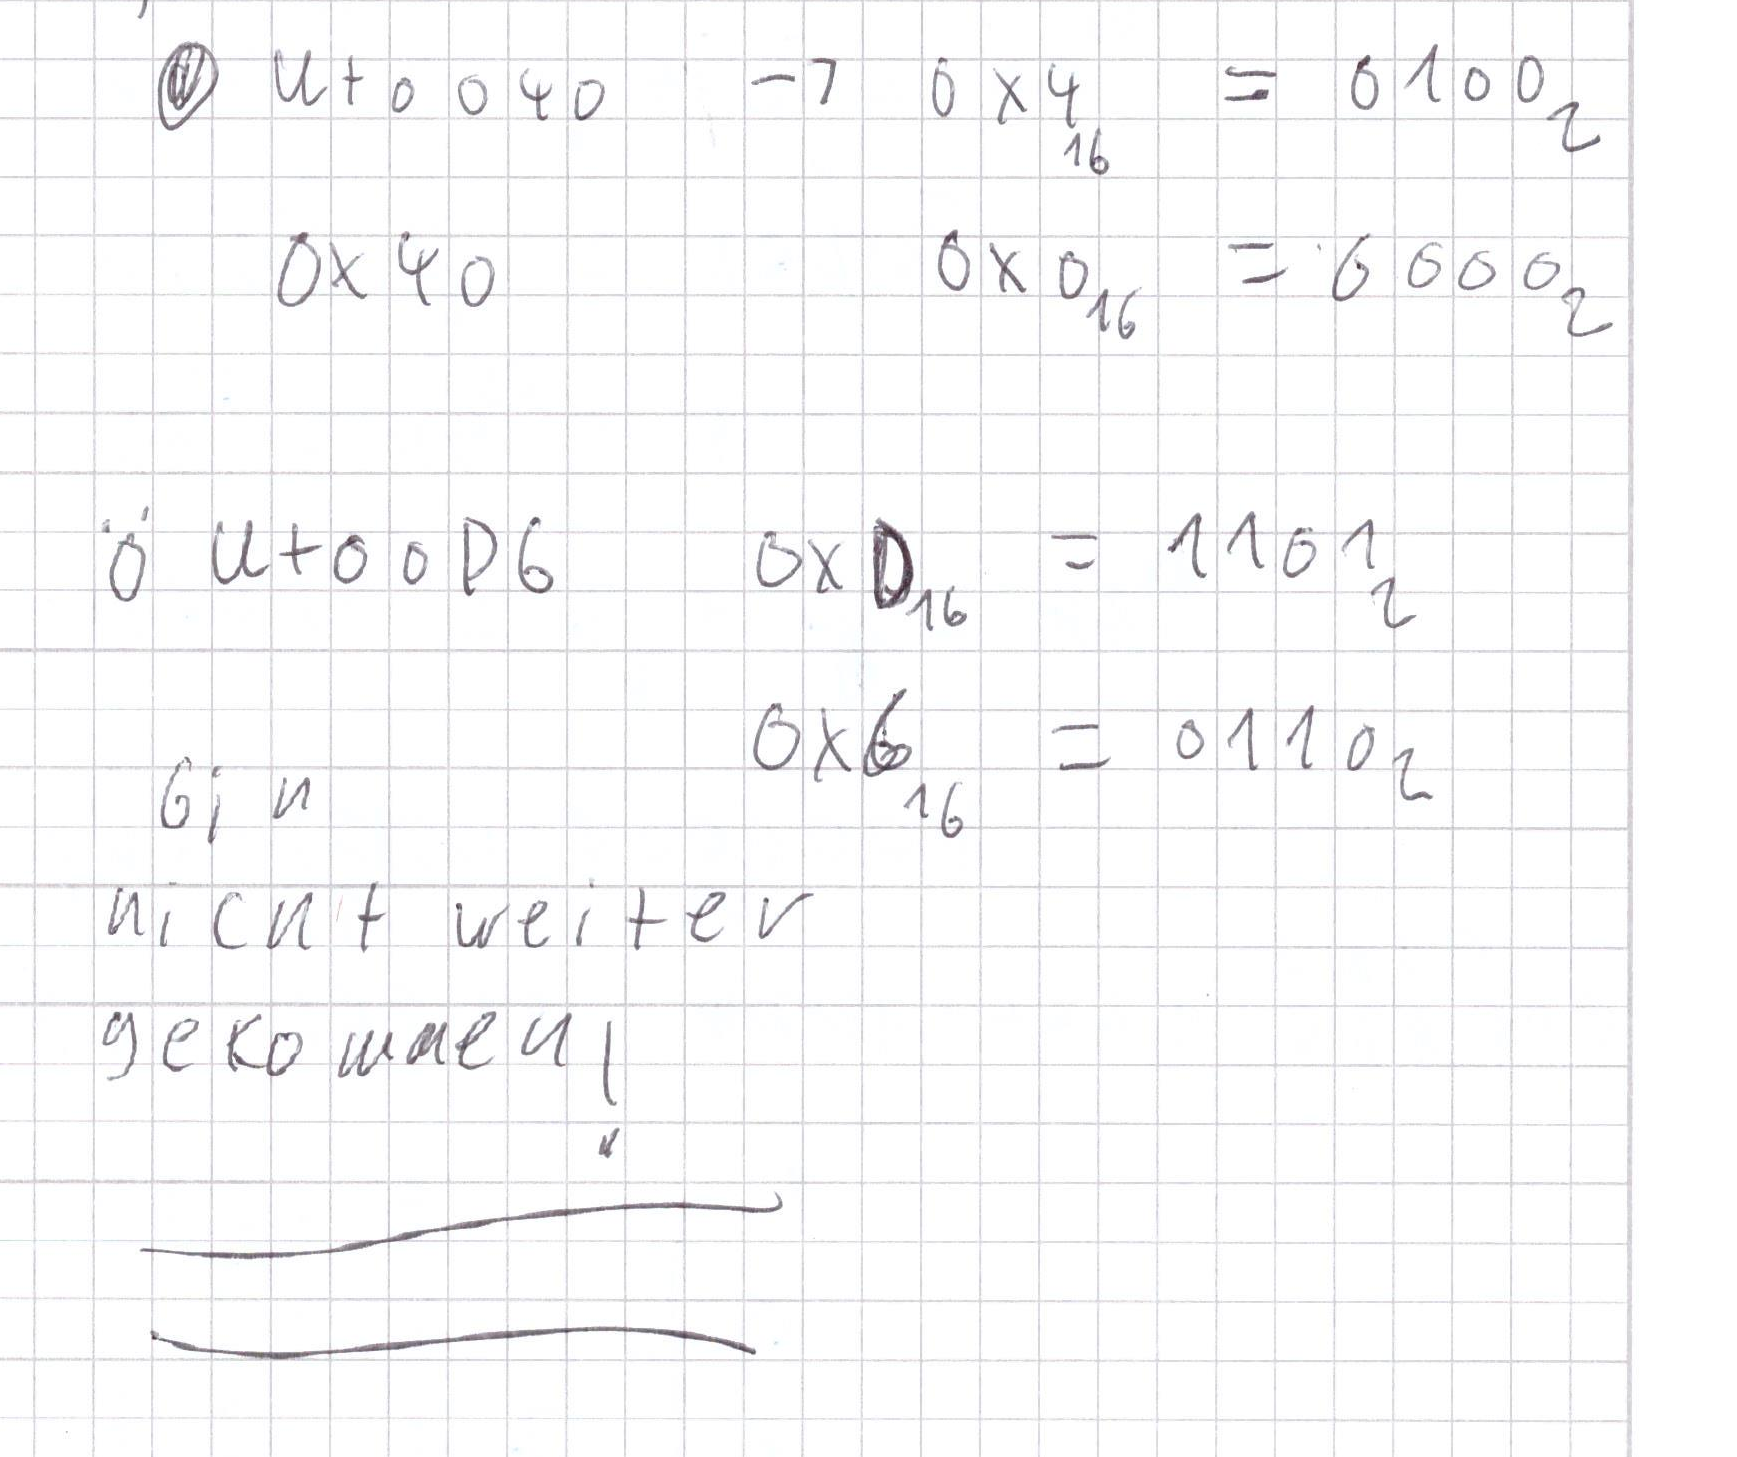 U+0040 -> 0x4₁₆ = 0100₂
0x40 0x0₁₆ = 0000₂
Ö U+00D6 0xD₁₆ = 1101₂
0x6₁₆ = 0110₂
bin
nicht weiter
gekommen!